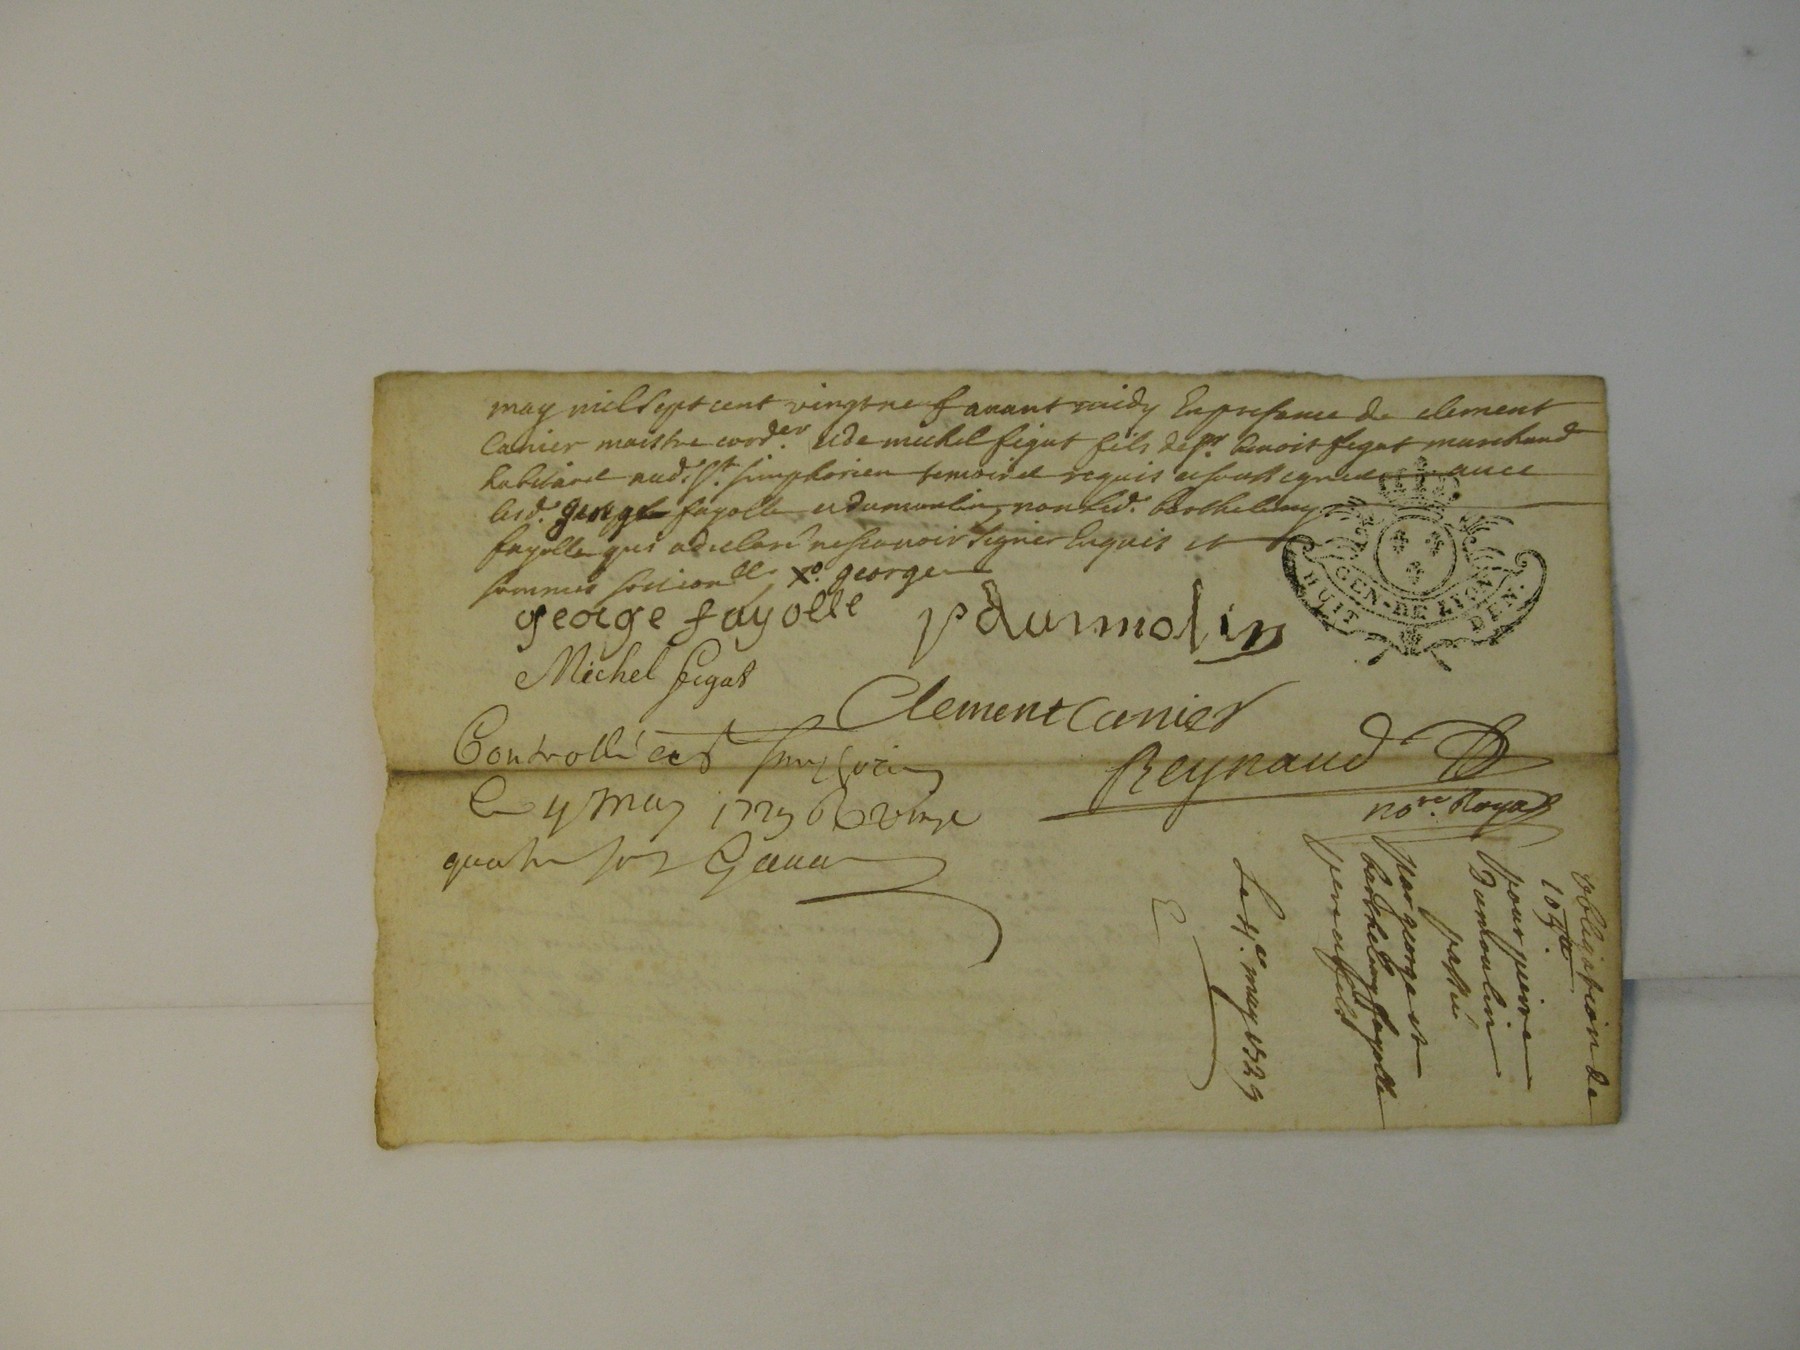 may mil sept cent vingt neuf avant midy En presence de clement
Canier maistre cord.er et de michel figat fils de s.r benoist figat marchand
habitant aud. S.t simphorien temoins requis et soussignes avec
lesd. george fayolle et dumoulin, non led. barthelemy
fayolle qui a declaré ne scavoir signer Enquis et
sommes X.o george
george fayolle pdurmolin
Michel figat
Clement Canier
Controllé a S.t simphorien
Le 4 may 1729 R vingt
quatre sols
Reynaud
no.re Royal
GEN·DE
HUIT DEN·
obligation de
pour peirre
Dumoulin
passée
par george et
barthelemy fayolle
pere et fils
Le 4.e may 1729